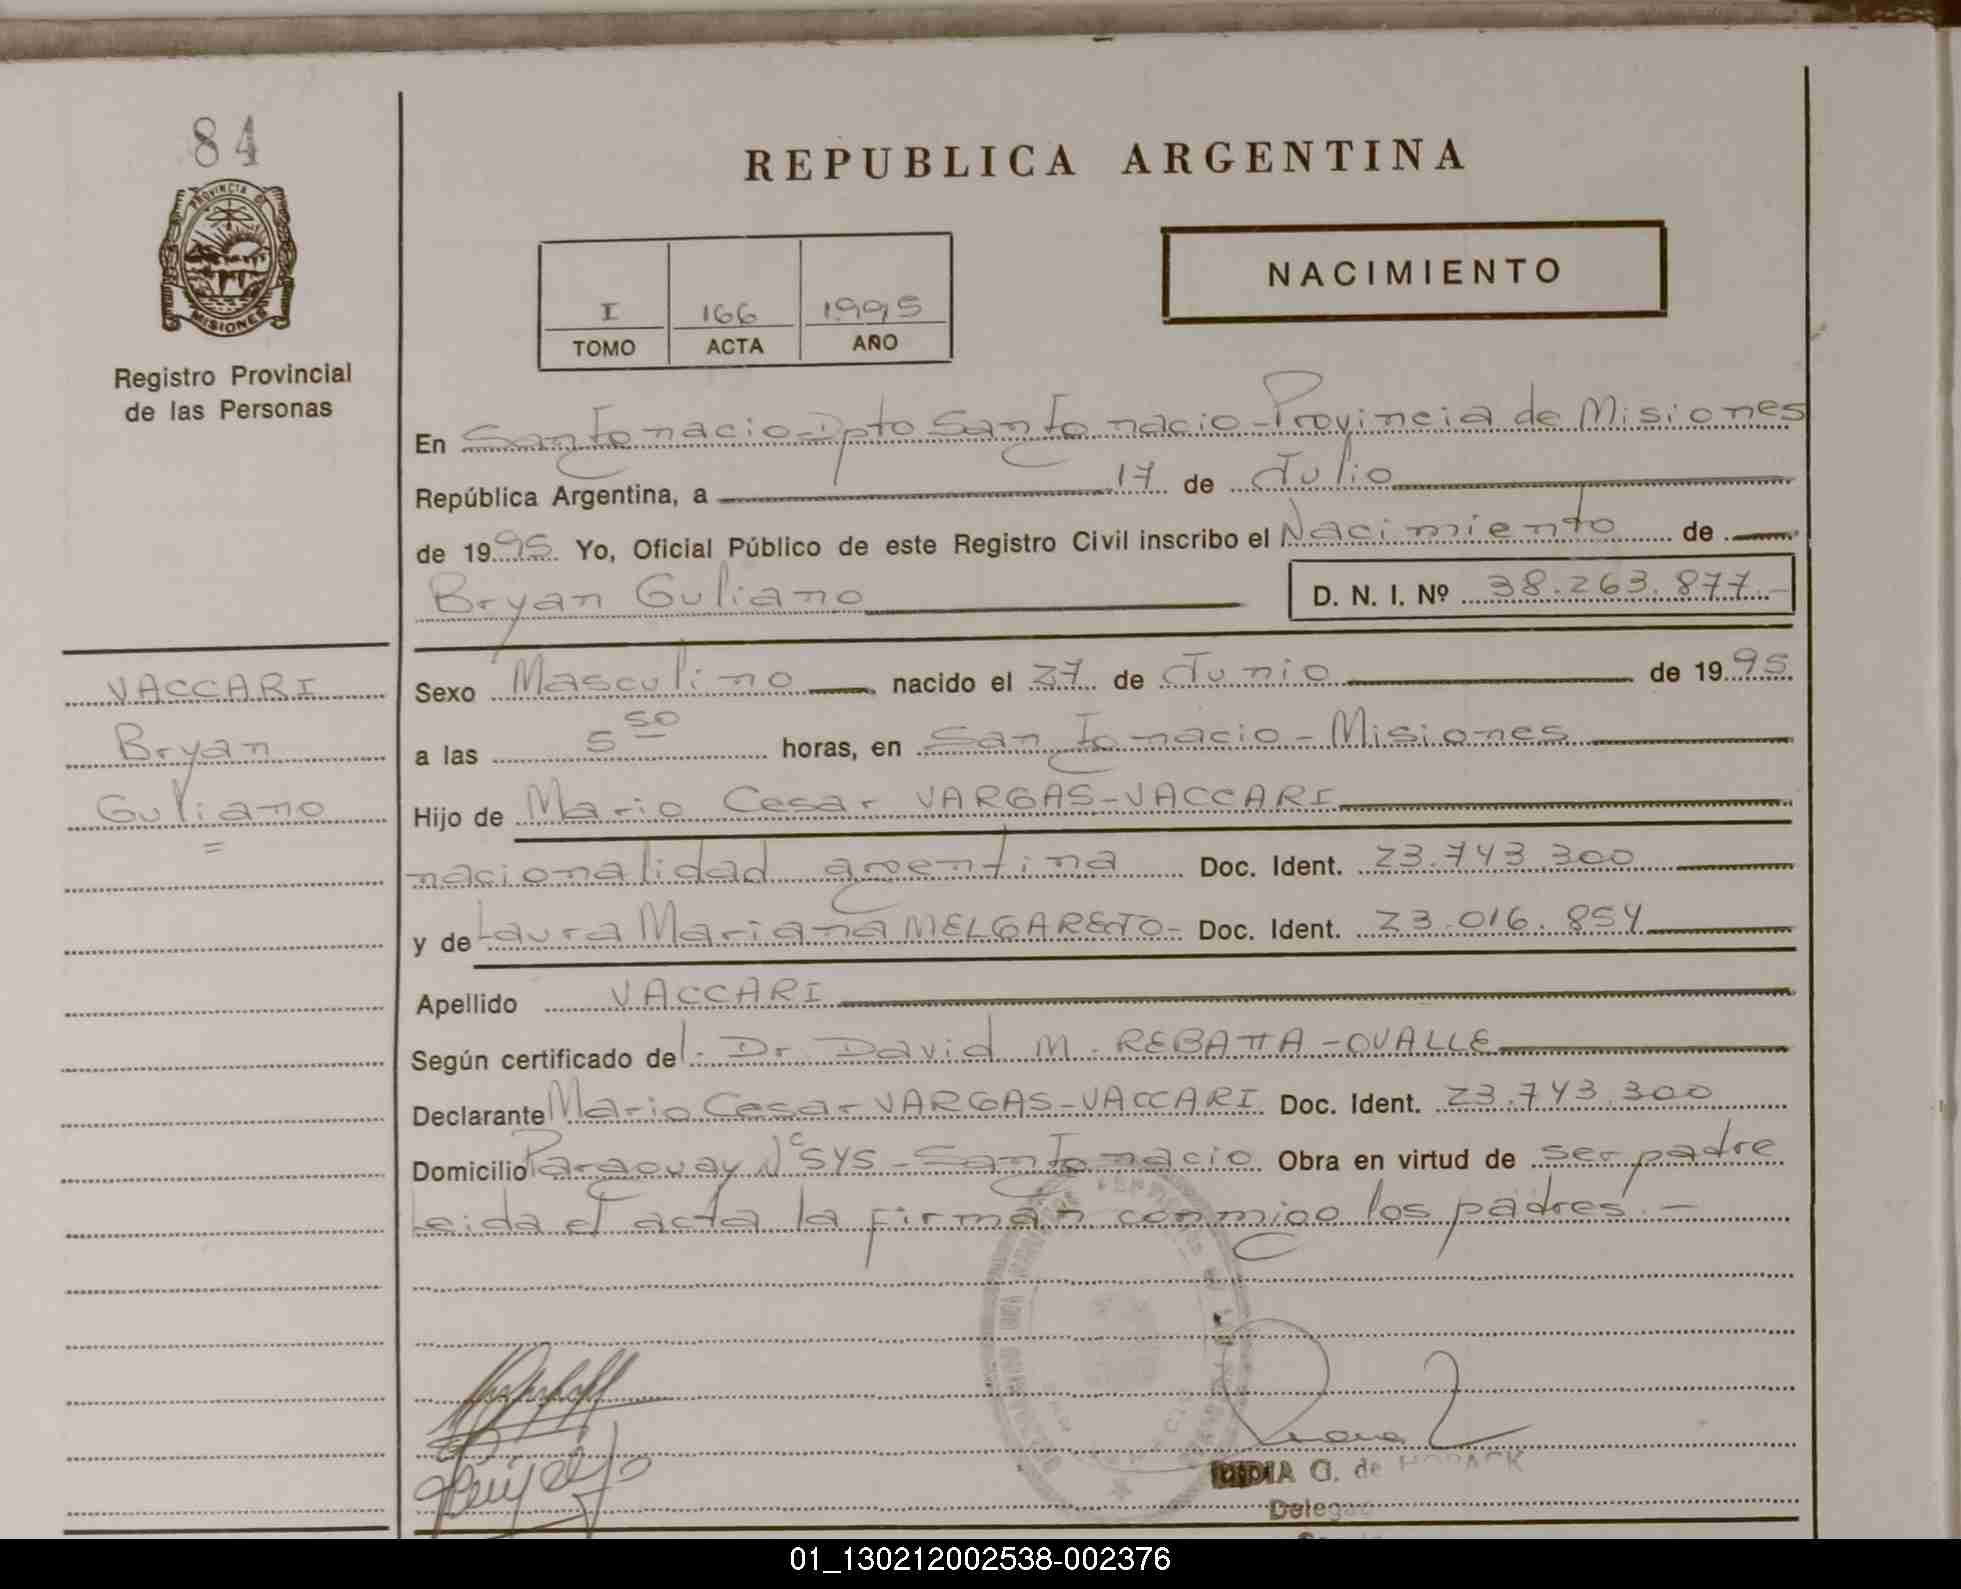 84
PROVINCIA DE
MISIONES
Registro Provincial
de las Personas
VACCARI
Bryan
Guliano
=
REPUBLICA ARGENTINA
NACIMIENTO
I 166 1995
TOMO ACTA AÑO
En San Ignacio-Dpto San Ignacio-Provincia de Misiones
República Argentina, a 17 de Julio
de 1995 Yo, Oficial Público de este Registro Civil inscribo el Nacimiento de
Bryan Guliano D. N. I. Nº 38.263.877.-
Sexo Masculino nacido el 27 de Junio de 1995
a las 5 50 horas, en San Ignacio - Misiones
Hijo de Mario Cesar VARGAS-VACCARI
nacionalidad argentina Doc. Ident. 23.743.300
y de Laura Mariana MELGAREJO- Doc. Ident. 23.016.854
Apellido VACCARI
Según certificado del. Dr. David M. REBATTA-OVALLE
Declarante Mario Cesar VARGAS-VACCARI Doc. Ident. 23.743.300
Domicilio Paraguay Nº 545 - San Ignacio Obra en virtud de ser padre
Leida el acta la firman conmigo los padres.-
G. de HORACK
Delegad
01_130212002538-002376